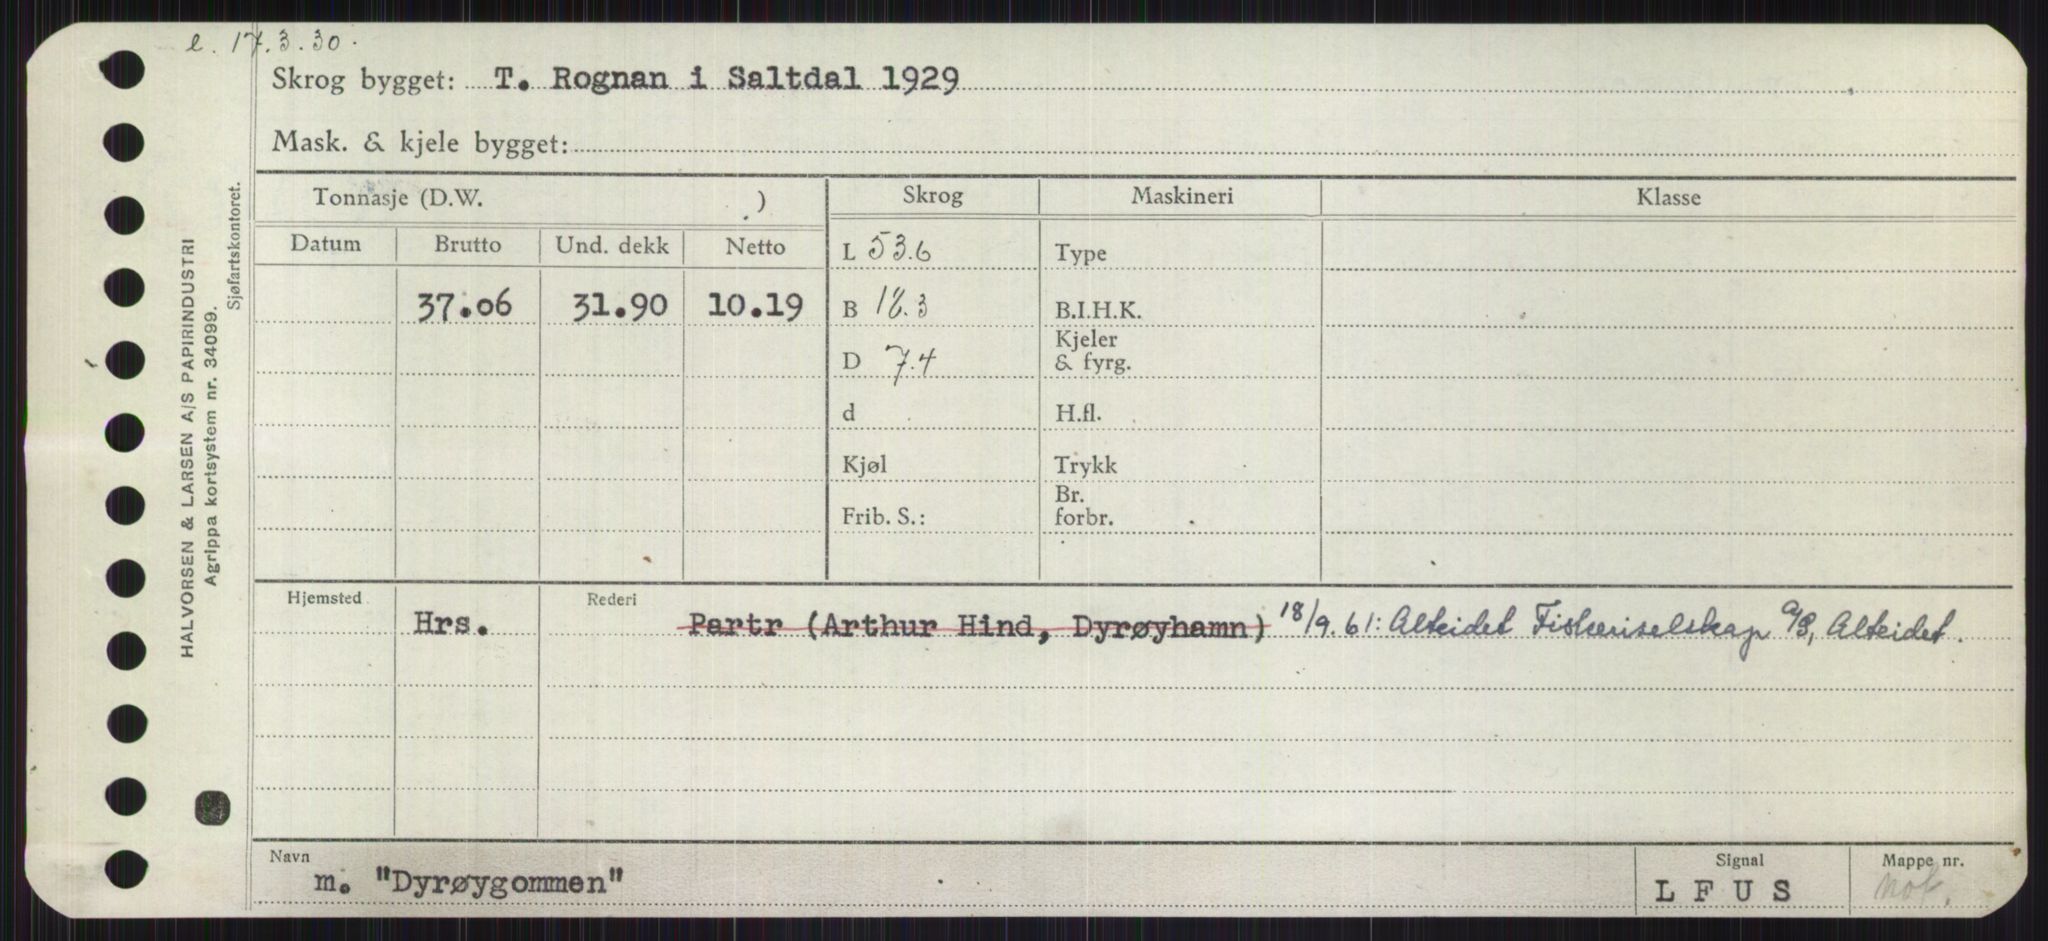 e. 17.3.30.
Skrog bygget: T. Rognan i Saltdal 1929
Mask. & kjele bygget:
Tonnasje (D.W. )
Skrog
Maskineri
Klasse
Datum
Brutto
Und. dekk
Netto
L 53.6
Type
37.06
31.90
10.19
B 18.3
B.I.H.K.
D 7.4
Kjeler
& fyrg.
d
H.fl.
Kjøl
Trykk
Frib. S.:
Br.
forbr.
Hjemsted
Hrs.
Rederi
Partr (Arthur Hind, Dyrøyhamn) 18/9.61: Alteidet Fiskeriselskap a/s, Alteidet.
Navn
m. "Dyrøygommen"
Signal
LFUS
Mappe nr.
not.
HALVORSEN & LARSEN A/S PAPIRINDUSTRI
Agrippa kortsystem nr. 34099.
Sjøfartskontoret.